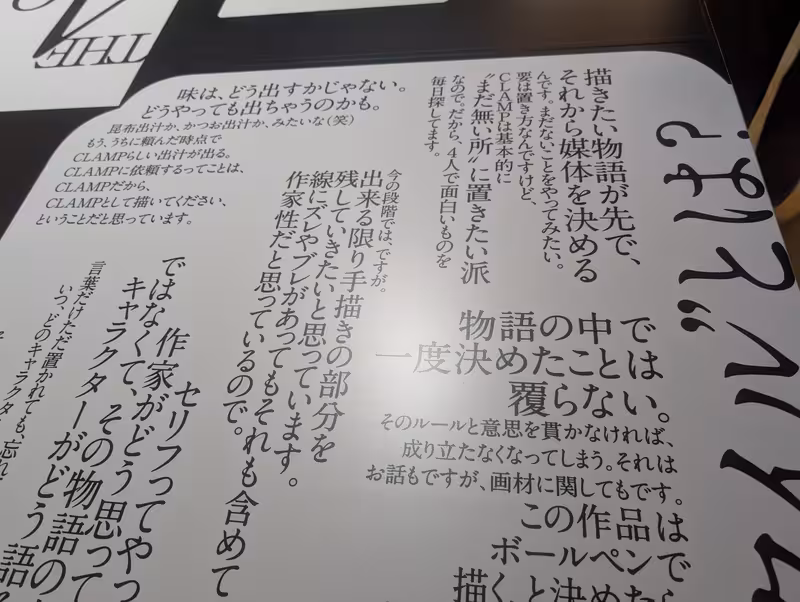 THE
描きたい物語が先で、
それから媒体を決める
んです。まだないことをやってみたい。
要は置き方なんですけど、
CLAMPは基本的に
“まだ無い所”に置きたい派
なので。だから、4人で面白いものを
毎日探してます。
味は、どう出すかじゃない。
どうやっても出ちゃうのかも。
昆布出汁か、かつお出汁か、みたいな(笑)
もう、うちに頼んだ時点で
CLAMPらしい出汁が出る。
CLAMPに依頼するってことは、
CLAMPだから、
CLAMPとして描いてください、
ということだと思っています。
今の段階では、ですが。
出来る限り手描きの部分を
残していきたいと思っています。
線にズレやブレがあってもそれも含めて
作家性だと思っているので。
物語の中で
一度決めたことは
覆らない。
そのルールと意思を貫かなければ、
成り立たなくなってしまう。それは
お話もですが、画材に関してもです。
この作品は
ボールペンで
描くと決めたら
セリフってやっ
作家がどう思って
ではなくて、その物語の
キャラクターがどう語
言葉だけただ置かれても、忘れ
いつ、どのキャラクタ